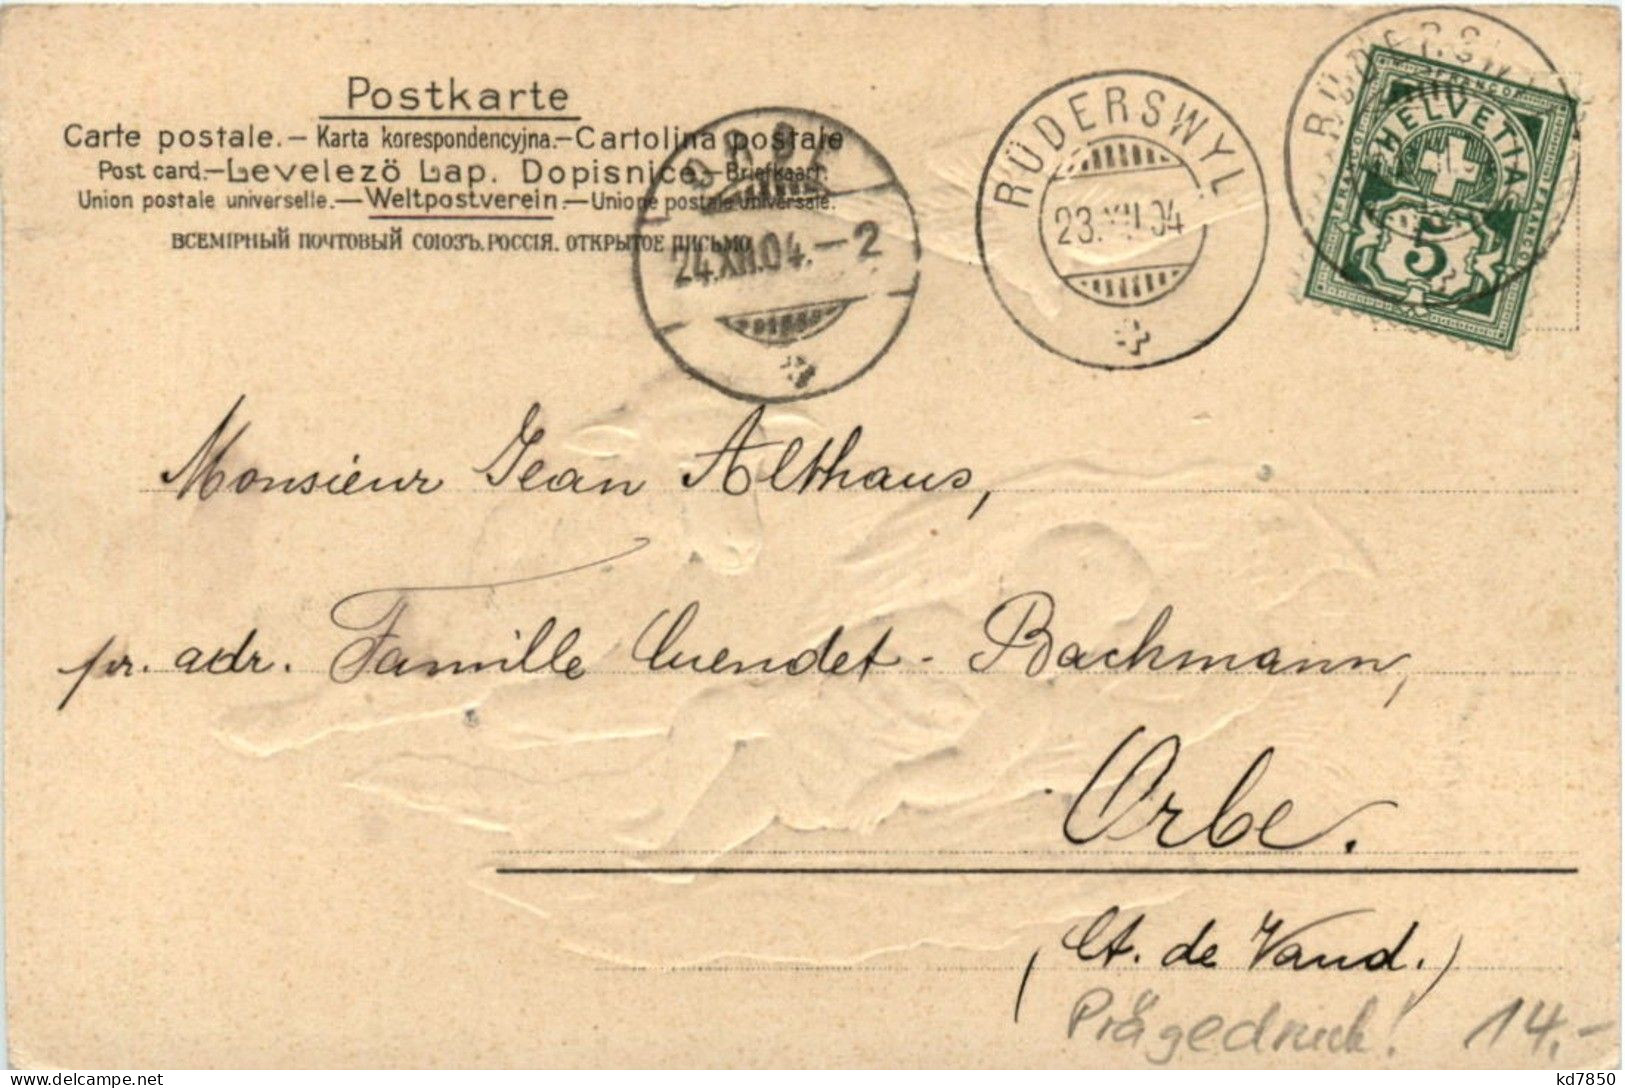 Postkarte
Carte postale.— Karta korespondencyjna.—Cartolina postale
Post card.—Levelező Lap. Dopisnice.—Briefkaart.
Union postale universelle.—Weltpostverein.—Unione postale universale.
ВСЕМІРНЫЙ ПОЧТОВЫЙ СОЮЗЪ. РОССІЯ. ОТКРЫТОЕ ПИСЬМО
24.XII.04.—2
RÜDERSWYL
23.XII.04
RÜDERSW
HELVETIA
5
Monsieur Jean Althaus,
pr. adr. Famille Cuendet - Bachmann,
Orbe.
(Ct. de Vaud.)
Prägedruck! 14.-
kd7850